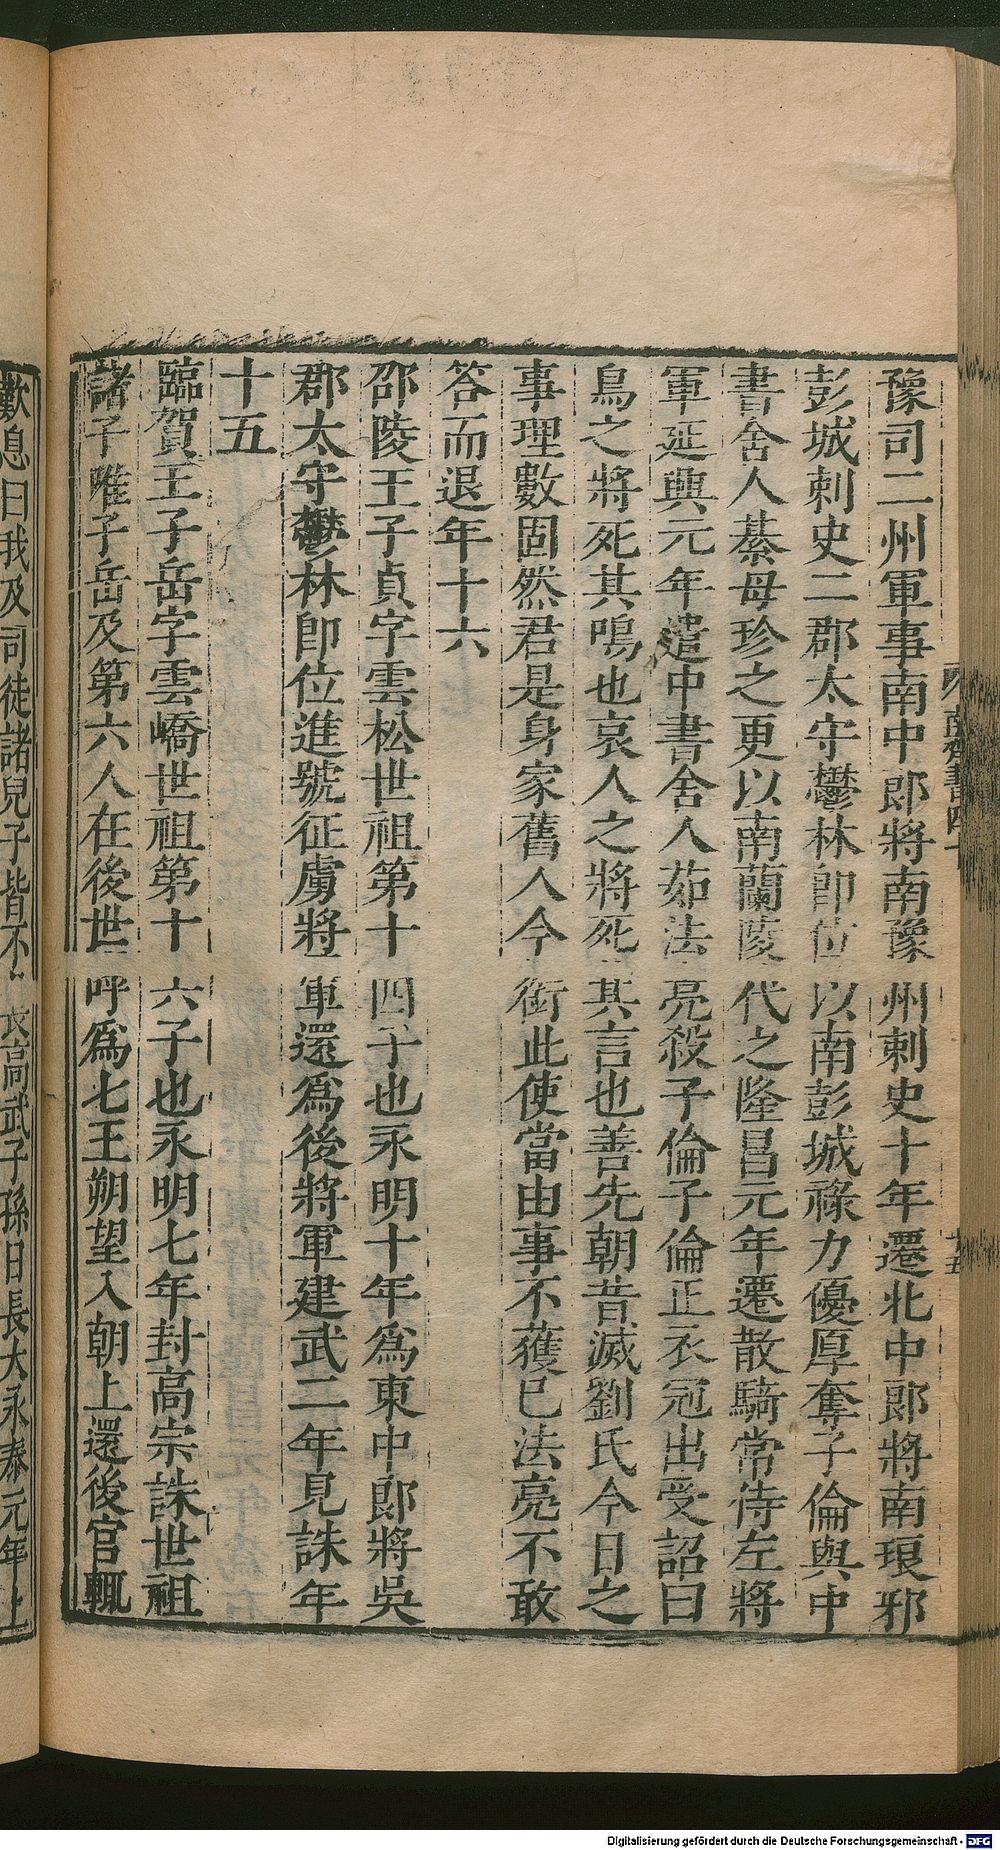 豫司二州軍事南中郎將南豫州刺史十年遷北中郎將南琅邪
彭城刺史二郡太守鬱林即位以南彭城祿力優厚奪子倫與中
書舍人綦母珍之更以南蘭陵代之隆昌元年遷散騎常侍左將
軍延興元年遣中書舍人茹法亮殺子倫子倫正衣冠出受詔曰
鳥之將死其鳴也哀人之將死其言也善先朝昔滅劉氏今日之
事理數固然君是身家舊人今銜此使當由事不獲已法亮不敢
答而退年十六
邵陵王子貞字雲松世祖第十四子也永明十年為東中郎將吳
郡太守鬱林即位進號征虜將軍還為後將軍建武二年見誅年
十五
臨賀王子岳字雲嶠世祖第十六子也永明七年封高宗誅世祖
諸子唯子岳及第六人在後世呼為七王朔望入朝上還後官輒
歎息曰我及司徒諸兒子皆不長高武子孫日長大永泰元年上
Digitalisierung gefördert durch die Deutsche Forschungsgemeinschaft - DFG